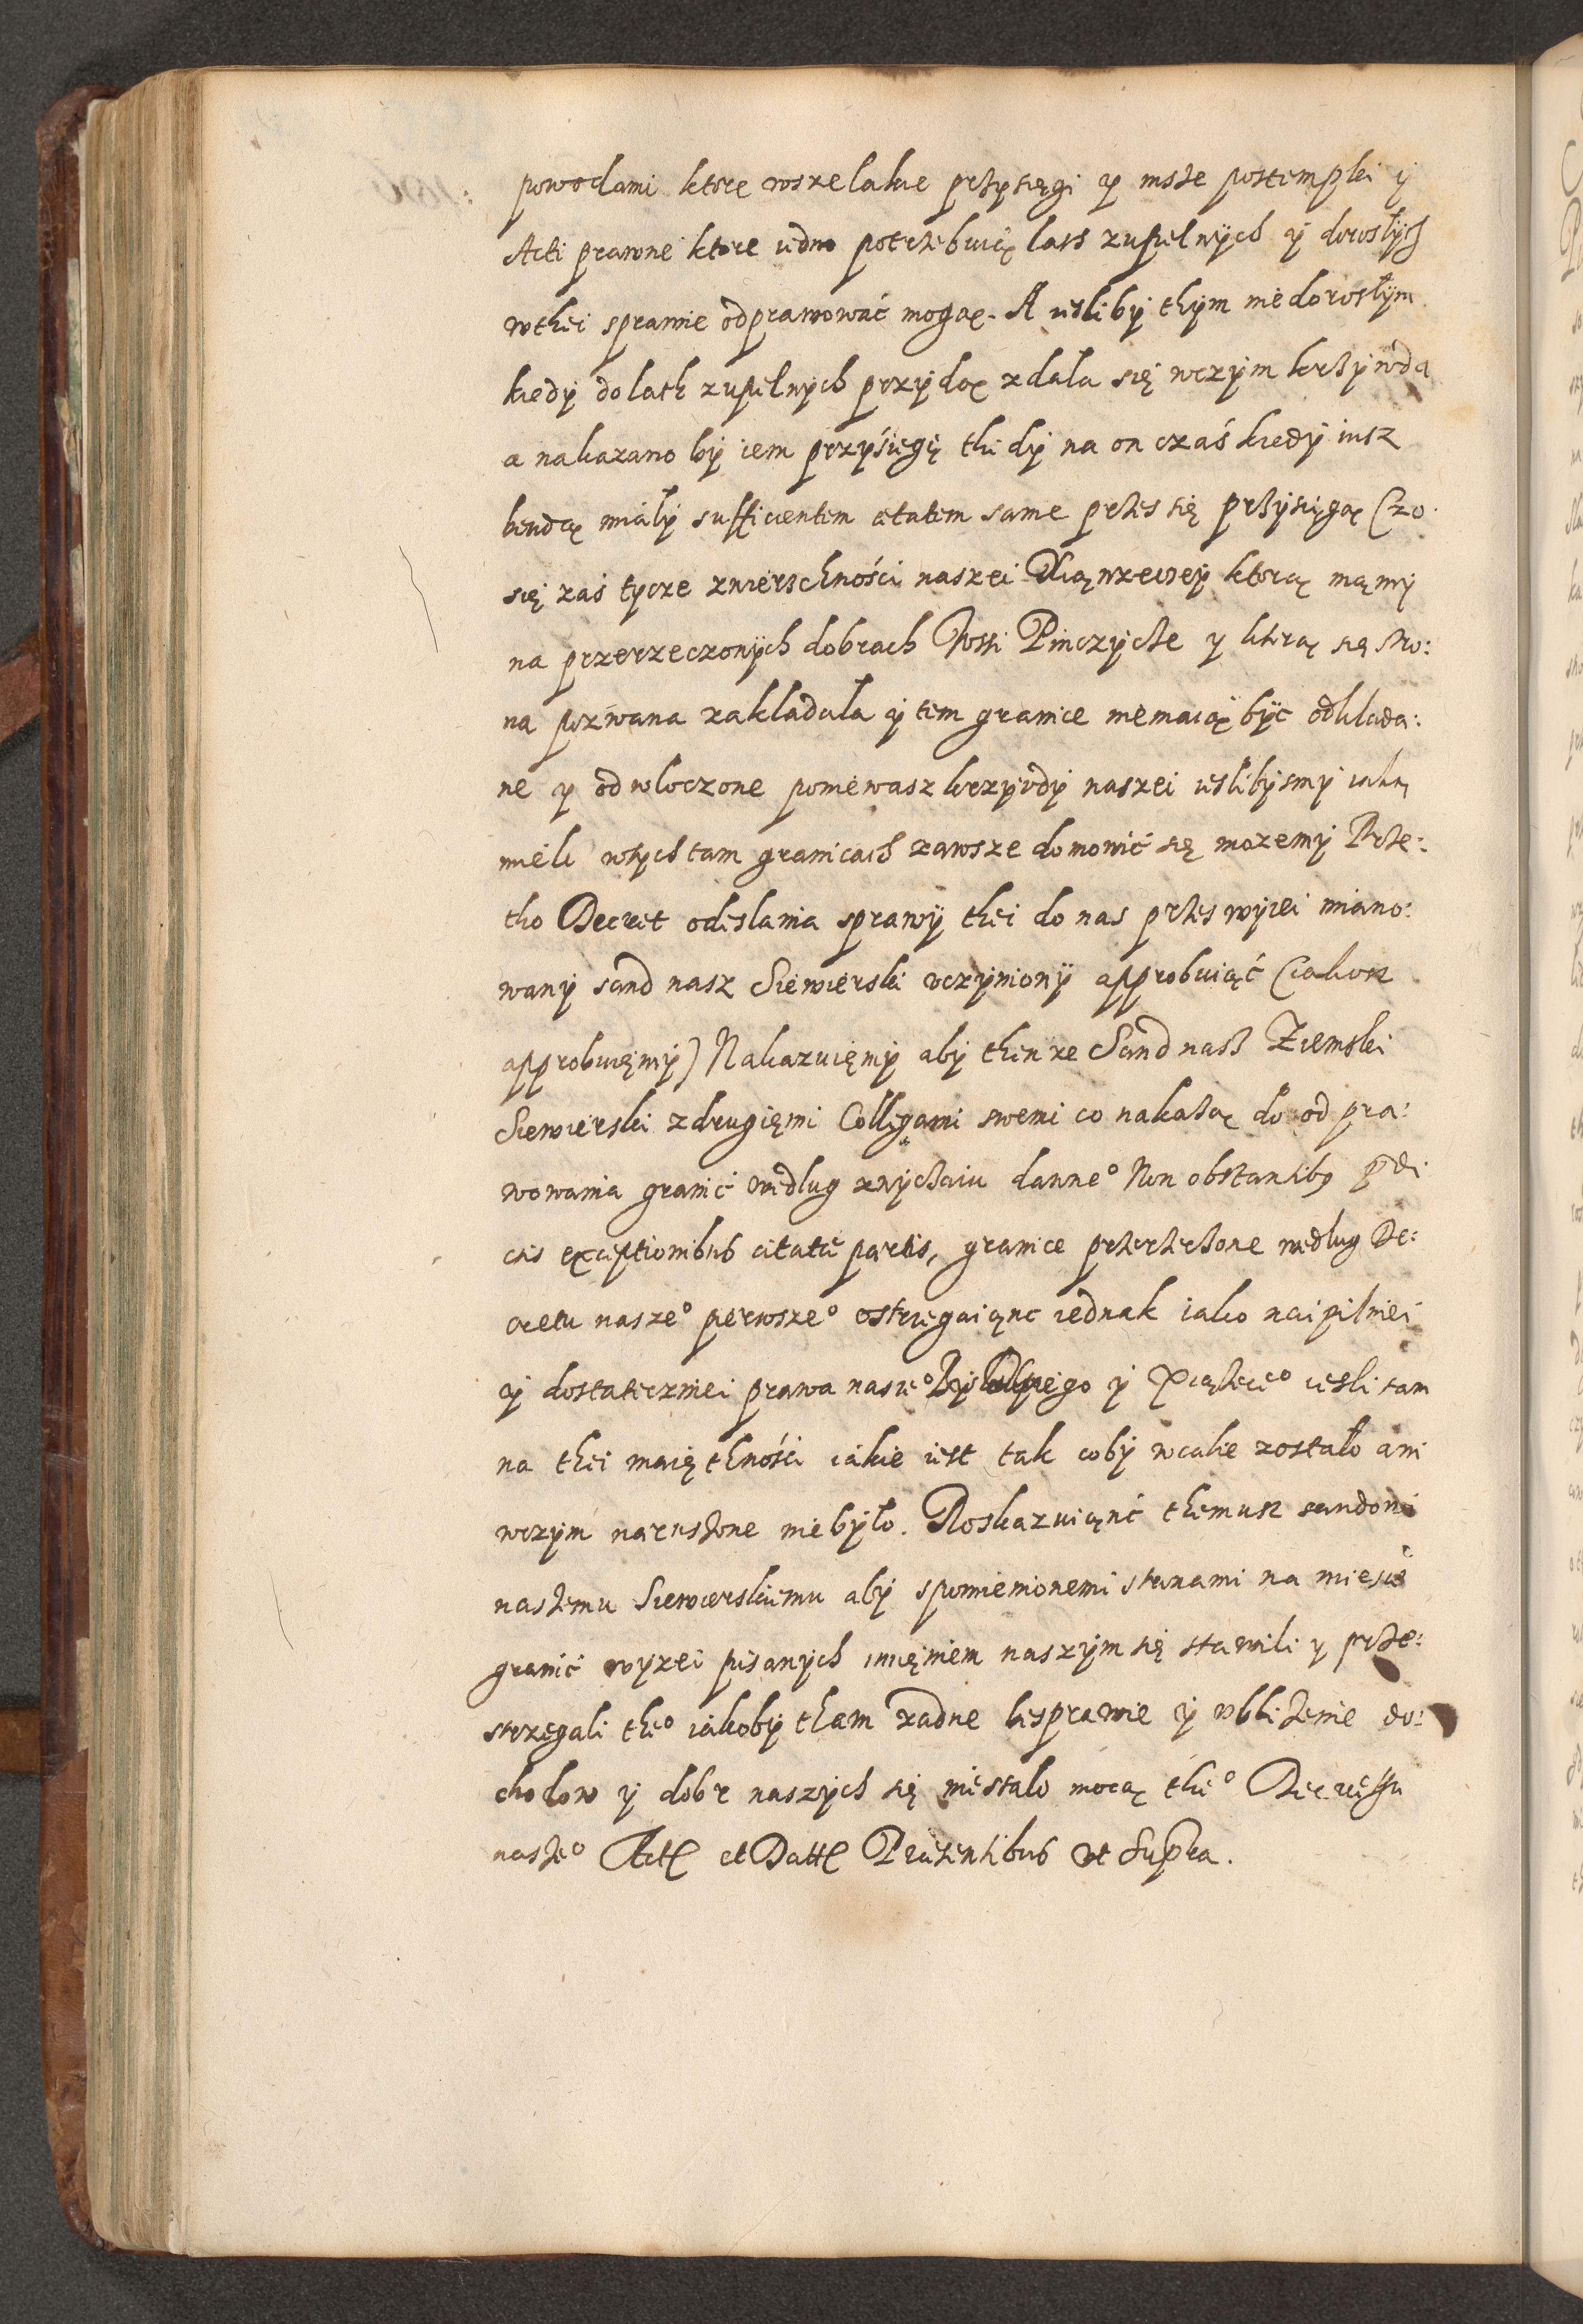 powodami ktore wszelakie przysięgi y insze postempki y
Acti prawne ktore iedno potrzebuią lath zupelnÿch ÿ doroslÿch
wthei sprawie odprawowac mogą. A iesliby thÿm niedoroslÿm
kiedÿ do lath zupelnÿch przÿdą zdala się wczÿm krzÿwda
a nakazano bÿ iem przÿsięgę thedÿ na on czas kiedÿ iusz
bendą mialÿ sufficientem ætatem same przes się przÿsięgą Czo
się zas tycze zwierzchnosci naszei Xiązwecey ktorą mąmÿ
na przerzeczonÿch dobrach Wsi Pinczÿcze y ktorą się stro:
na pozwana zakladala ÿ tem granice niemaią bÿc odklada:
ne y odwloczone poniewasz krzÿwdÿ naszei ieslibÿsmÿ iaką
mieli wtych tam granicach zawsze domowic się mozemÿ Prze:
tho Decret odeslania sprawÿ thei do nas przes wÿzei miano:
wanÿ sand nasz Siewierski uczÿnionÿ approbuiąc (iakosz
approbuięmÿ) Nakazuięmÿ abÿ then ze Sand nasz Ziemski
Siewierski zdrugięmi Collegami swemi co nakażą do odpra:
wowania granic wedlug zwÿczaiu danne° Non obstantib9 pdi
ctis exceptionibus citatæ partis, granice przerzeczone wedlug De:
cretu nasze° pierwsze° ostrzegaiąnc iednak iako naipilniei
ÿ dostateczniei prawa nasze° y Xiążęce° iesli tam
na thei maięthnosci iakie iest tak cobÿ wcalie zostalo ani
wczÿm naruszone niebÿlo. Roskazuiąnc themusz sandowi
naszemu Siewierskiemu abÿ spomienionemi stanami na miesce
granic wyzei pisanÿch imięniem naszÿm się stawili y prze:
strzegali the° iakobÿ tham zadne bezprawie ÿ ubliżenie do:
chodow ÿ dobr naszÿch się niestalo mocą the° Decretu
nasze° Act et Datt Præsentibus ut Supra.